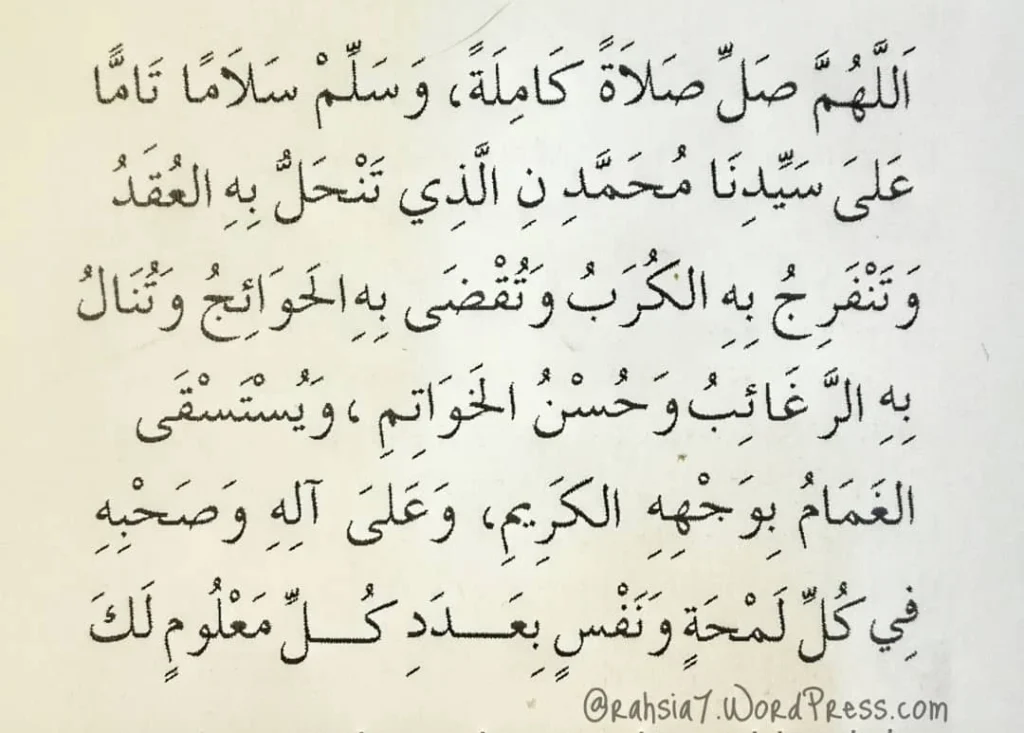 اَللَّهُمَّ صَلِّ صَلاَةً كَامِلَةً، وَسَلِّمْ سَلاَمًا تَامًّا
عَلىَ سَيِّدِنَا مُحَمَّدِ نِ الَّذِي تَنْحَلُّ بِهِ العُقَدُ
وَتَنْفَرِجُ بِهِ الكُرَبُ وَتُقْضَى بِهِ الَحَوَائِجُ وَتُنَالُ
بِهِ الرَّغَائِبُ وَحُسْنُ الَخَوَاتِمِ ، وَيُسْتَسْقَى
الغَمَامُ بِوَجْهِهِ الكَرِيمِ، وَعَلىَ آلِهِ وَصَحْبِهِ
فِي كُلِّ لَمْحَةٍ وَنَفْسٍ بِعَـــدَدِ كُـــلِّ مَعْلُومٍ لَكَ
@rahsia7.WordPress.com